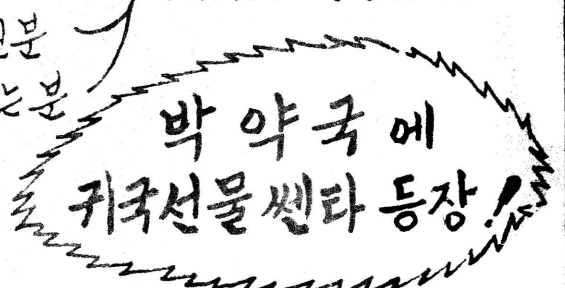 분
는분
박 약국에
귀국선물 쎈타 등장!